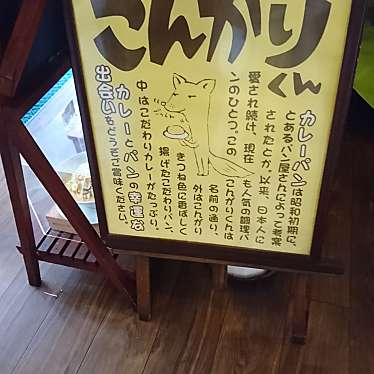 こんがりくん
カレーパンは昭和初期に、
とあるパン屋さんによって考案
されたとか。以来、日本人に
愛され続け、現在も人気の調理パ
ンのひとつ。この こんがりくんは
名前の通り、
外はこんがり
きつね色に香ばしく
揚げたこだわりパン、
中はこだわりカレーがたっぷり。
カレーとパンの幸運な
出会いをどうぞご賞味ください。